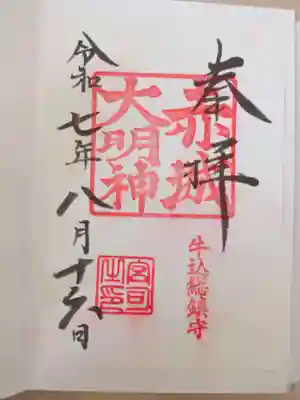 奉拝
赤城
大明神
牛込総鎮守
令和七年八月十六日
宮司
之印